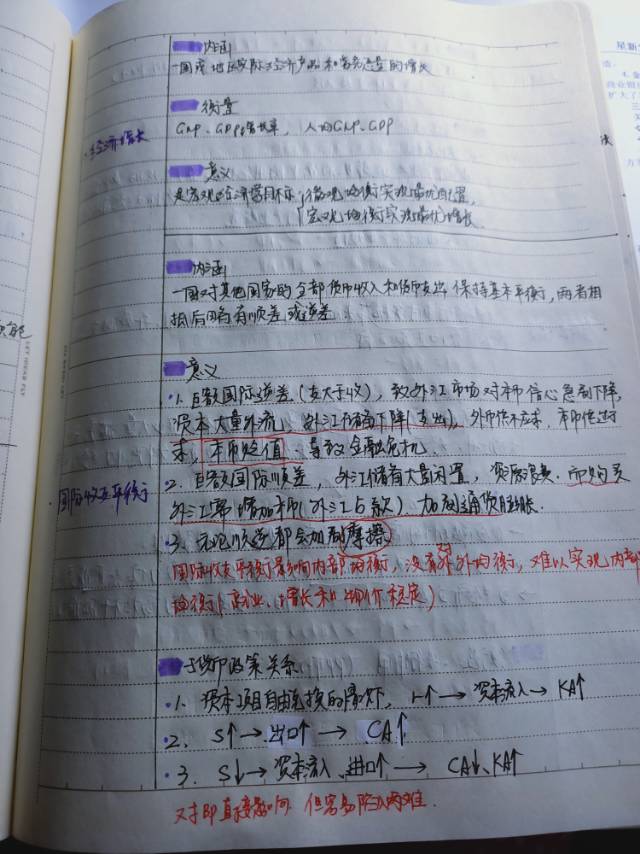 内涵
一国或地区实际经济产品和劳务总量的增长
衡量
GNP、GDP增长率， 人均GNP、GDP
·经济增长
意义
是宏观经济首目标 微观均衡实现最优配置，
宏观均衡实现最优增长
内涵
一国对其他国家的全部货币收入和货币支出 保持基本平衡，两者相
抵后略有顺差或逆差
意义
·1. 巨额国际逆差（支大于收），致外汇市场对本币信心急剧下降，
资本大量外流，外汇储备下降（支出），外币供不应求，本币供过于
求，本币贬值，导致金融危机
2. 巨额国际顺差，外汇储备大量闲置，资源浪费，而购买
外汇需增加本币（外汇占款），加剧通货膨胀.
·3. 无论顺逆都会加剧摩擦
国际收支平衡影响内部均衡，没有外均衡，难以实现内部
均衡（就业、增长和物价稳定）
·国际收支平衡
与货币政策关系
·1. 资本项目自由兑换的情况下， r↑→资本流入→KA↑
·2. S↑→出口↑→ CA↑
·3. S↓→资本流入、进口↑→ CA↓、KA↑
星新